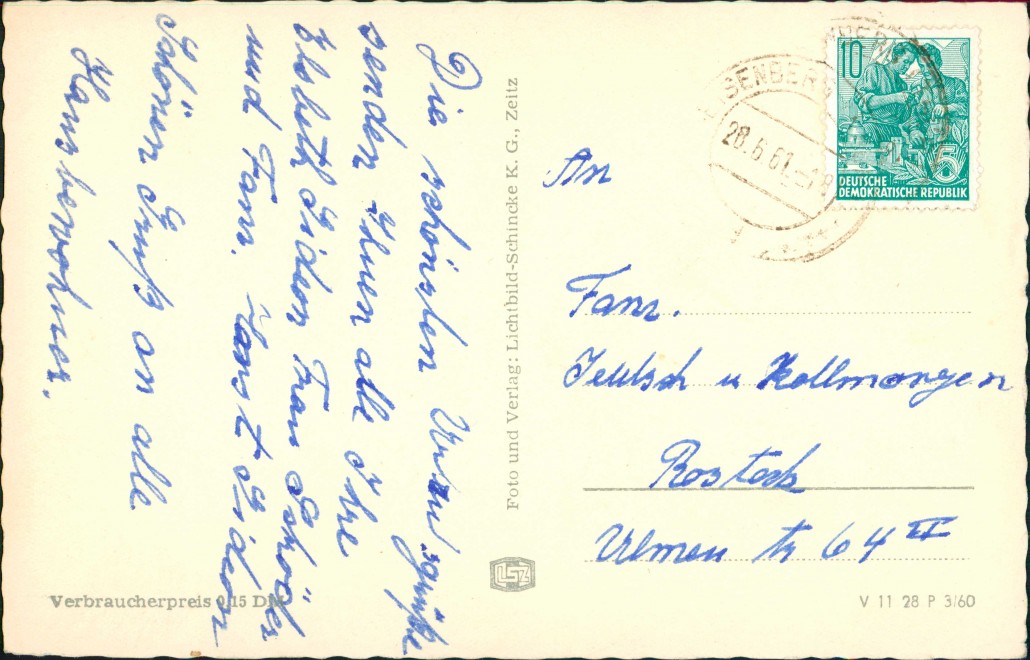 Die schönsten Urlaubsgrüße
senden Ihnen alle Ihre
Elsbeth Gideon Frau Schröder
und Fam. Horst Gideon
Schönen Gruß an alle
Hausbewohner.
Foto und Verlag: Lichtbild-Schincke K. G., Zeitz
LSZ
Verbraucherpreis 0,15 DM
EISENBERG
28.6.61
10
5
DEUTSCHE
DEMOKRATISCHE REPUBLIK
An
Fam.
Jeutsch u Kollmorgen
Rostock
Ulmen str 64 II
V 11 28 P 3/60